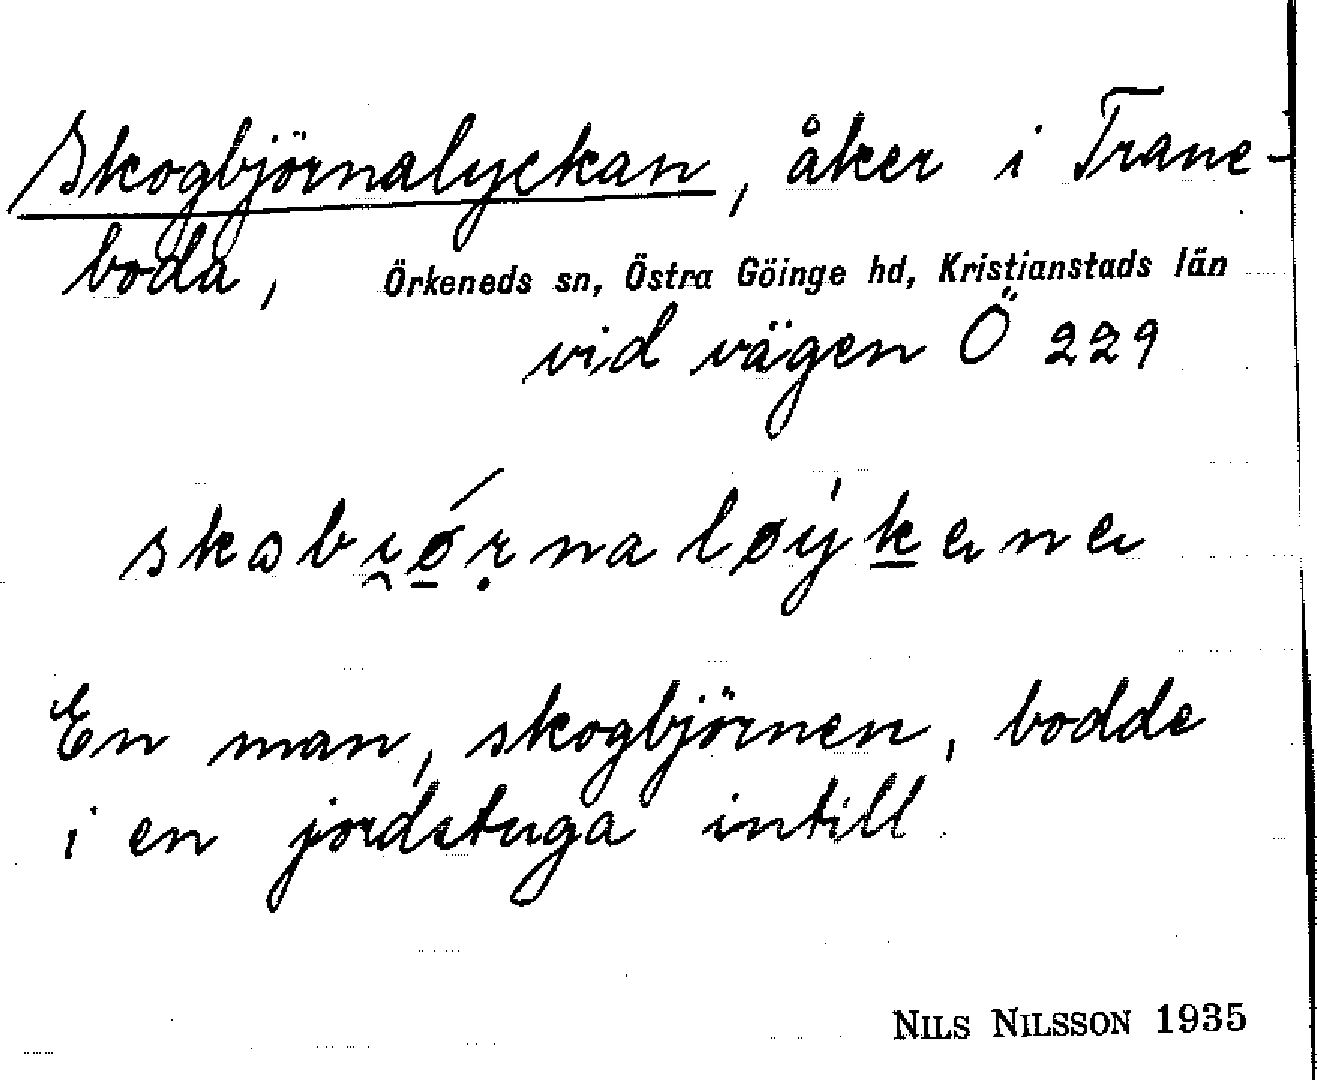 Skogbjörnalyckan, åker i Trane-
boda, Örkeneds sn, Östra Göinge hd, Kristianstads län
vid vägen Ö 229
En man, skogbjörnen, bodde
i en jordstuga intill.
NILS NILSSON 1935